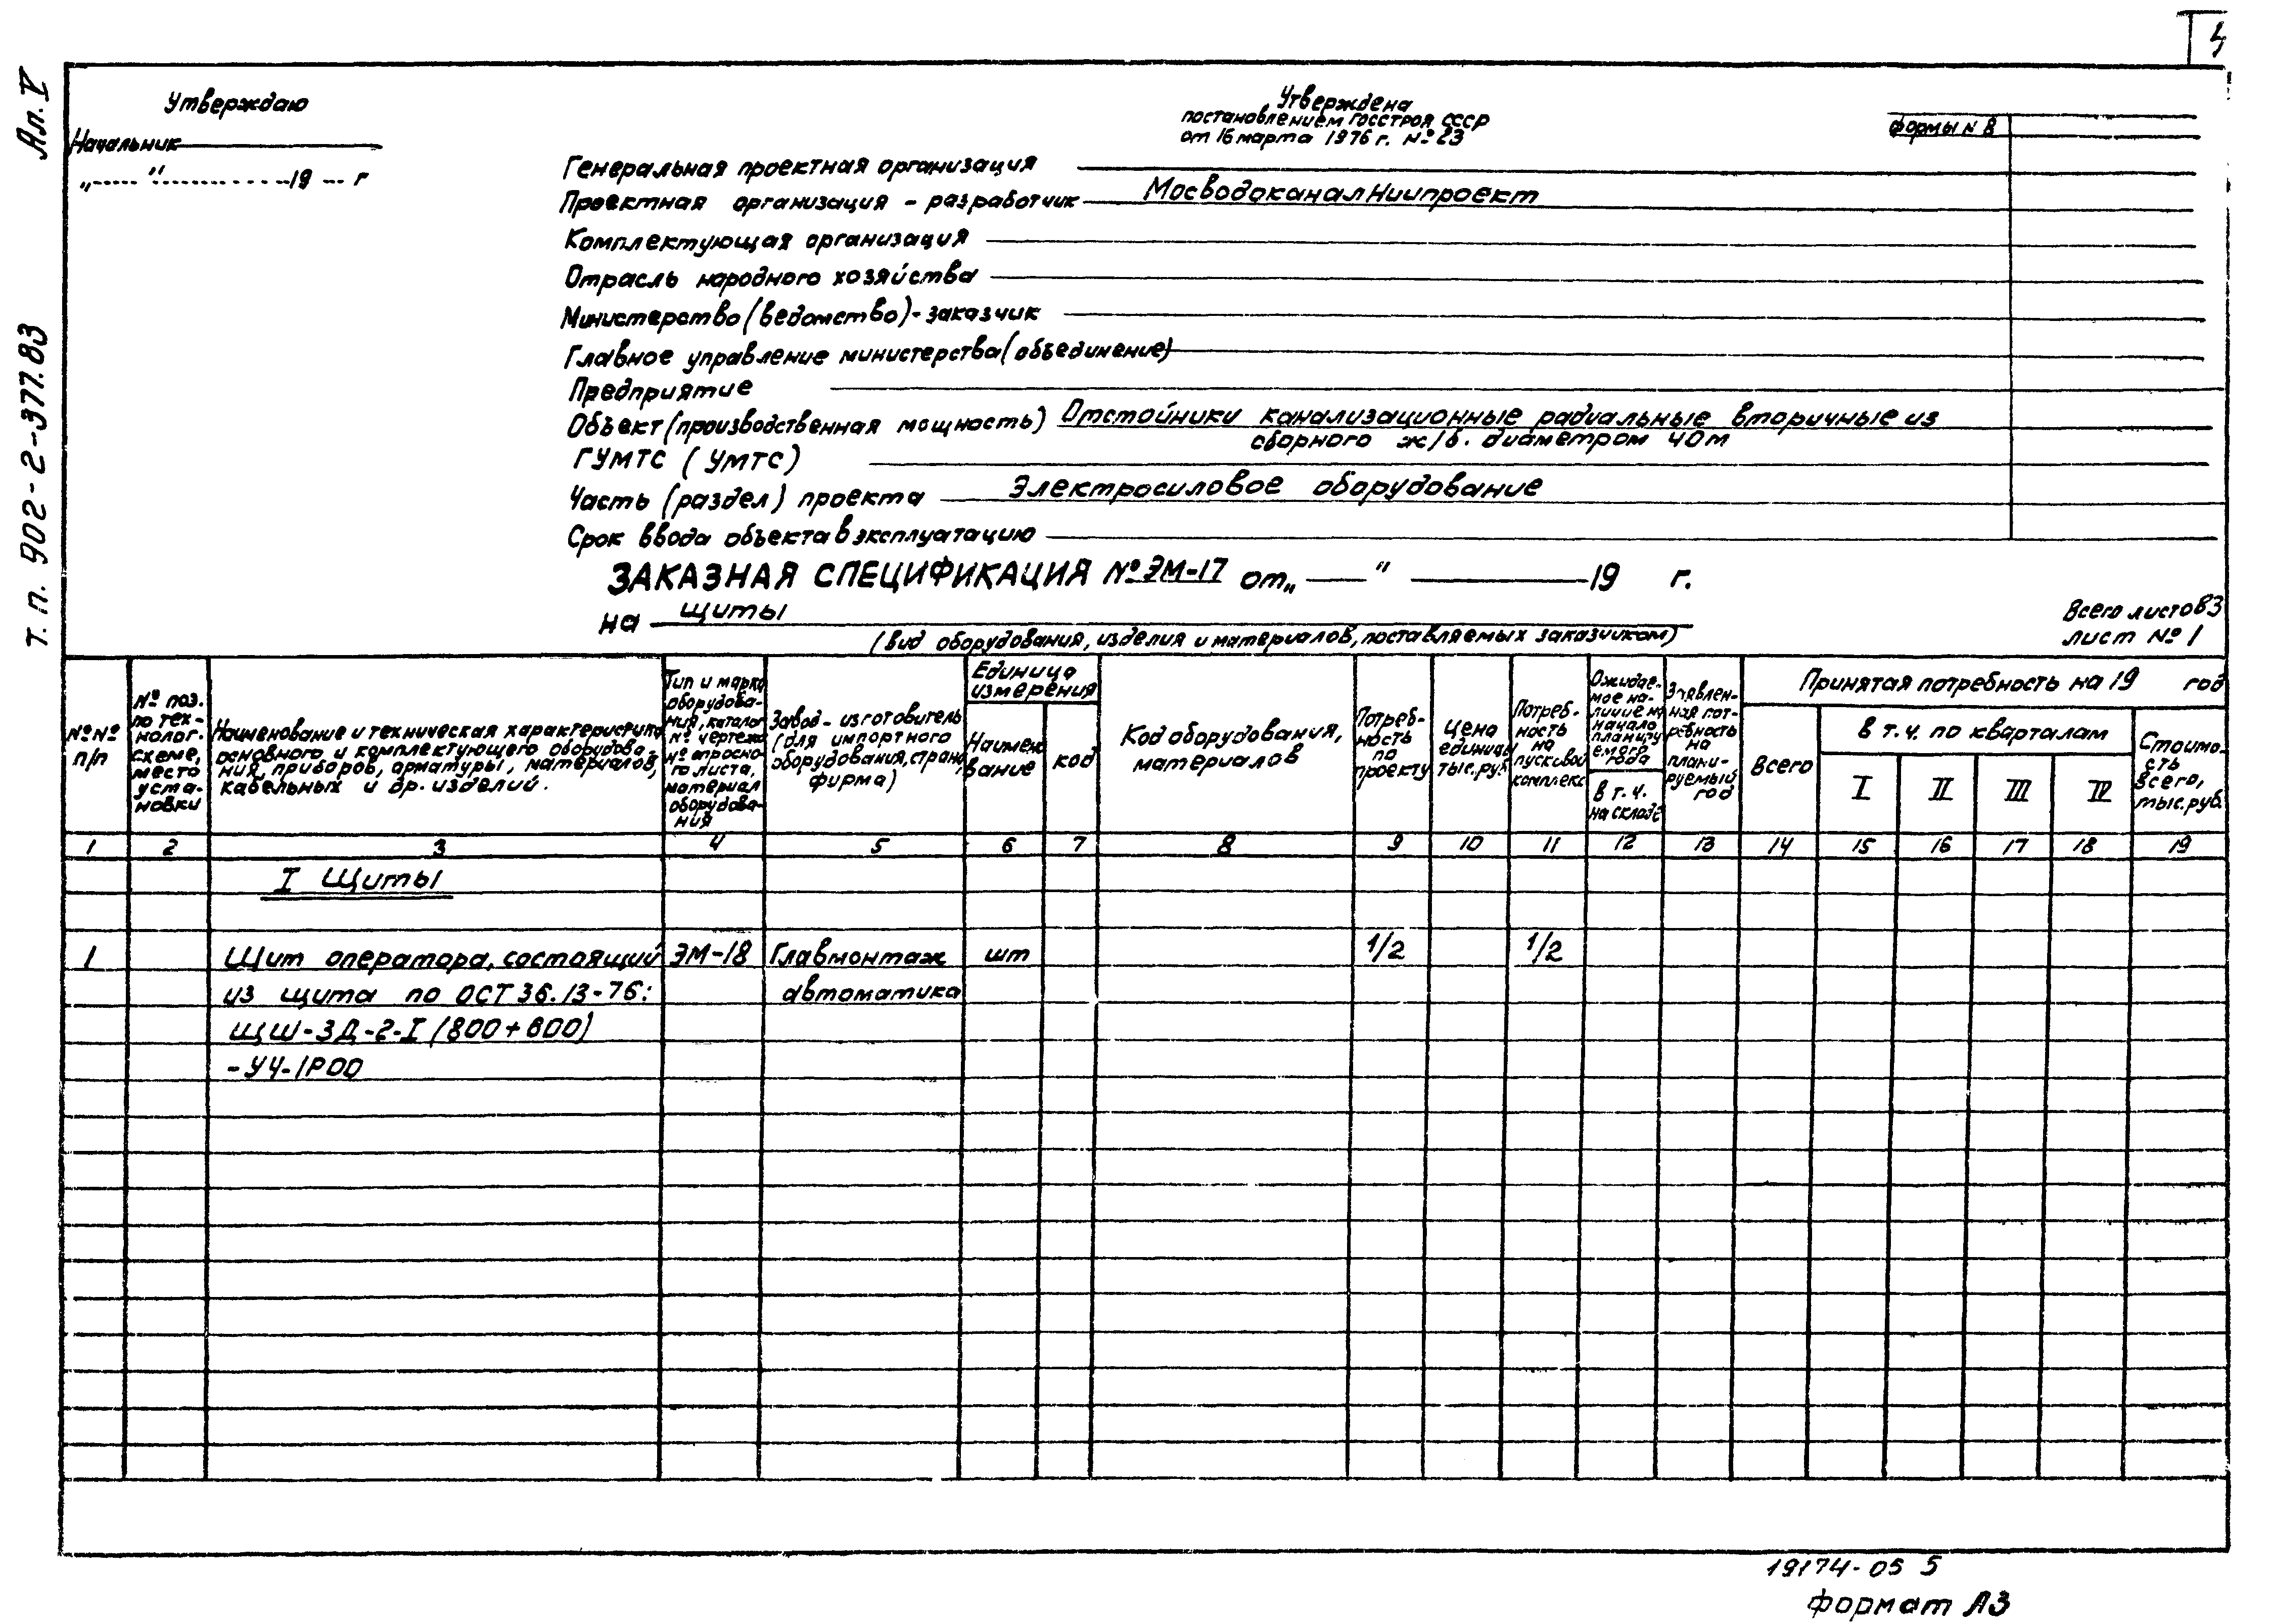 4
Ал. V
т. п. 902-2-377.83
Утверждаю
Начальник
„ “ 19 г
Утверждена
постановлением Госстроя СССР
от 16 марта 1976 г. № 23
формы N 8
Генеральная проектная организация
Проектная организация - разработчик МосводоканалНиипроект
Комплектующая организация
Отрасль народного хозяйства
Министерство (ведомство)-заказчик
Главное управление министерства (объединение)
Предприятие
Объект (производственная мощность) Отстойники канализационные радиальные вторичные из
сборного ж/б. диаметром 40м
ГУМТС (УМТС)
Часть (раздел) проекта Электросиловое оборудование
Срок ввода объекта в эксплуатацию
ЗАКАЗНАЯ СПЕЦИФИКАЦИЯ № ЭМ-17 от „ “ 19 г.
на щиты
(вид оборудования, изделия и материалов, поставляемых заказчиком)
Всего листов 3
лист № 1
№№
п/п
№ поз.
по тех-
нолог.
схеме,
место
уста-
новки
Наименование и техническая характеристика
основного и комплектующего оборудова-
ния, приборов, арматуры, материалов,
кабельных и др. изделий.
Тип и марка
оборудова-
ния, каталог
№ чертежа
№ опросно-
го листа,
материал
оборудова-
ния
Завод-изготовитель
(для импортного
оборудования, страна,
фирма)
Единица
измерения
Наимено
вание
код
Код оборудования,
материалов
Потреб-
ность
по
проекту
Цена
единицы
тыс.руб
Потреб-
ность
на
пусковой
комплекс
Ожидае-
мое на-
личие на
начало
планиру
емого
года
в т.ч.
на складе
Заявлен-
ная пот-
ребность
на
плани-
руемый
год
Принятая потребность на 19 год
Всего
в т.ч. по кварталам
I II III IV
Стоимо-
сть
всего,
тыс.руб.
1 2 3 4 5 6 7 8 9 10 11 12 13 14 15 16 17 18 19
I Щиты
1 Щит оператора, состоящий ЭМ-18 Главмонтаж шт 1/2 1/2
из щита по ОСТ 36.13-76: автоматика
ЩШ-ЗД-2-I (800+600)
-У4-1Р00
19174-05 5
формат А3